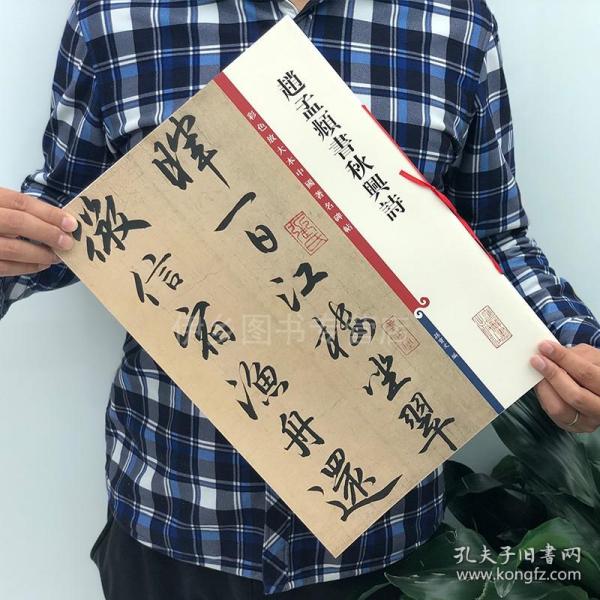 趙孟頫書秋興詩
彩色放大本中國著名碑帖
孫寶文 編
暉一日江樓坐翠
微信宿漁舟還
孔夫子旧书网
www.kongfz.com